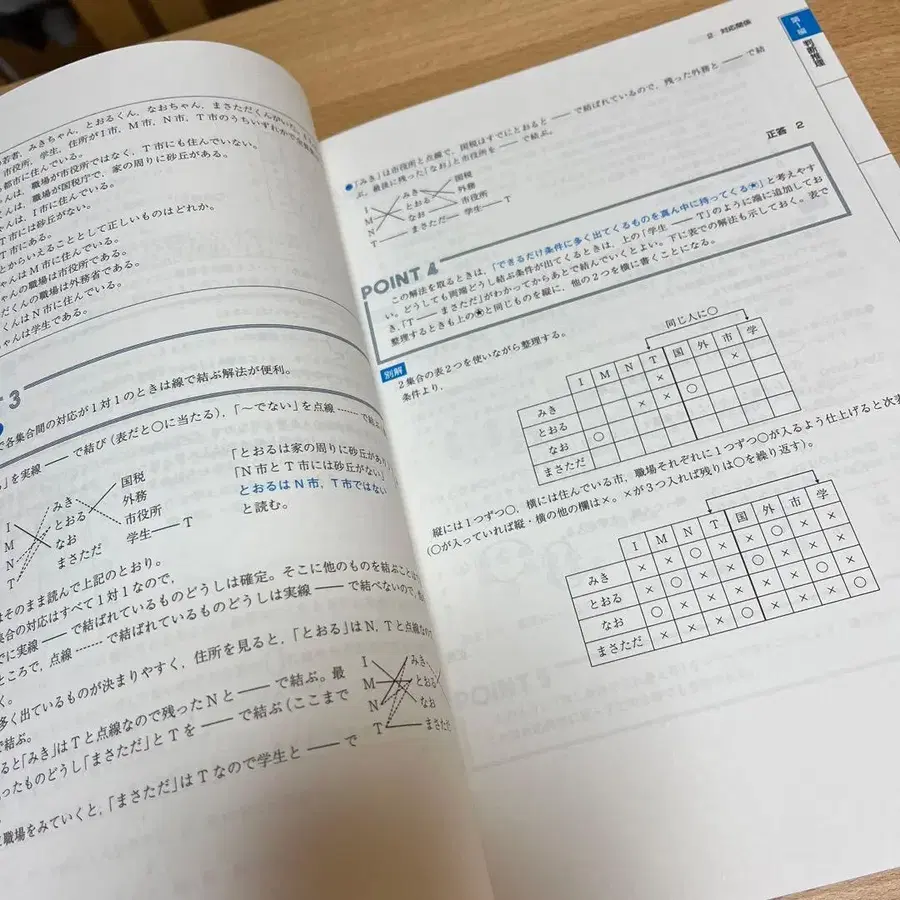 若者，みきちゃん，とおるくん，なおちゃん，まさただくんがいた。
市役所，学生，住所がI市，M市，N市，T市のうちいずれかで
都市に住んでいる。
んは，職場が市役所ではなく，T市にも住んでいない。
んは，職場が国税庁で，家の周りに砂丘がある。
んは，I市に住んでいる。
T市には砂丘がない。
T市にある。
とからいえることとして正しいものはどれか。
んはM市に住んでいる。
ゃんの職場は市役所である。
だくんの職場は外務省である。
くんはN市に住んでいる。
ちゃんは学生である。
T 3
で各集合間の対応が1対1のときは線で結ぶ解法が便利。
」を実線――で結び（表だと○に当たる），「～でない」を点線-------で結ぶ
I みき 国税
M とおる 外務
N なお 市役所
T まさただ 学生――T
「とおるは家の周りに砂丘があり」
「N市とT市には砂丘がない」
とおるはN市，T市ではない
と読む。
はそのまま読んで上記のとおり。
集合の対応はすべて1対1なので，
でに実線――で結ばれているものどうしは確定。そこに他のものを結ぶことは
ところで，点線------で結ばれているものどうしは実線――で結べないので，
く。
多く出ているものが決まりやすく，住所を見ると，「とおる」はN，Tと点線なので
で結ぶ。
ると「みき」はTと点線なので残ったNと――で結ぶ。最
ったものどうし「まさただ」とTを――で結ぶ（ここまで
I みき
M とおる
N なお
T まさただ
職場をみていくと，「まさただ」はTなので学生と――で
2 対応関係
第1編
判断推理
●「みき」は市役所と点線で，国税はすでにとおると――で結ばれているので，残った外務と――で結
ぶ。最後に残った「なお」と市役所を――で結ぶ。
I みき 国税
M とおる 外務
N なお 市役所
T まさただ 学生 T
正答 2
POINT 4
この解法を取るときは，「できるだけ条件に多く出てくるものを真ん中に持ってくる★」と考えやす
い。どうしても両端どうし結ぶ条件が出てくるときは，上の「学生――T」のように端に追加してお
き，「T――まさただ」がわかってからあとで結んでいくとよい。下に表での解法も示しておく。表で
整理するときも上の★と同じものを縦に，他の2つを横に書くことになる。
別解
2集合の表2つを使いながら整理する。
条件より，
同じ人に○
I M N T 国 外 市 学
みき × ×
とおる × × ○
なお ○
まさただ
縦には1つずつ○，横には住んでいる市，職場それぞれに1つずつ○が入るよう仕上げると次表
（○が入っていれば縦・横の他の欄は×。×が3つ入れば残りは○を繰り返す）。
I M N T 国 外 市 学
みき × × ○ × × ○ × ×
とおる × ○ × × ○ × × ×
なお ○ × × × × × ○ ×
まさただ × × × ○ × × × ○